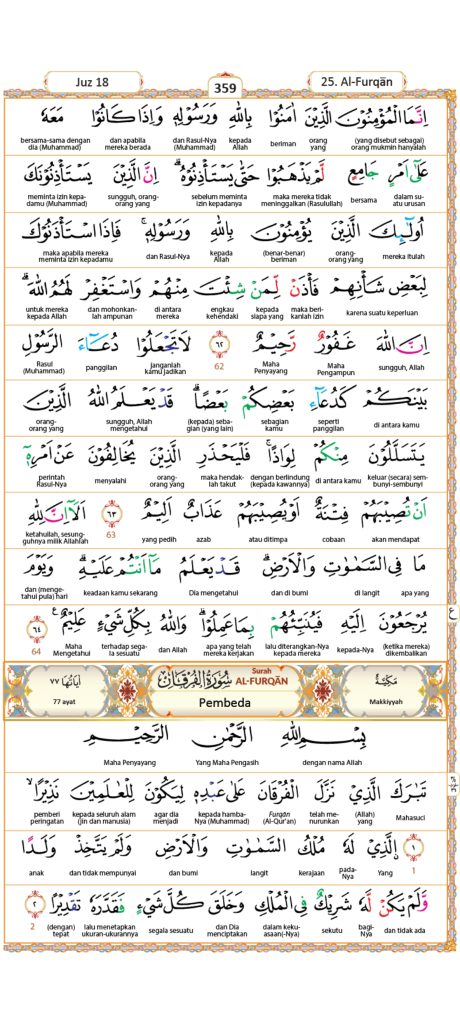 Juz 18
359
25. Al-Furqān
اِنَّمَا الْمُؤْمِنُوْنَ الَّذِيْنَ اٰمَنُوْا بِاللّٰهِ وَرَسُوْلِهٖ وَاِذَا كَانُوْا مَعَهٗ
(yang disebut sebagai) orang mukmin hanyalah orang yang beriman kepada Allah dan Rasul-Nya (Muhammad) dan apabila mereka berada bersama-sama dengan dia (Muhammad)
عَلٰٓى اَمْرٍ جَامِعٍ لَّمْ يَذْهَبُوْا حَتّٰى يَسْتَأْذِنُوْهُۗ اِنَّ الَّذِيْنَ يَسْتَأْذِنُوْنَكَ
dalam su-atu urusan bersama maka mereka tidak meninggalkan (Rasulullah) sebelum meminta izin kepadanya sungguh, orang-orang yang meminta izin kepa-damu (Muhammad)
اُولٰۤىِٕكَ الَّذِيْنَ يُؤْمِنُوْنَ بِاللّٰهِ وَرَسُوْلِهٖۚ فَاِذَا اسْتَأْذَنُوْكَ
mereka itulah orang-orang yang (benar-benar) beriman kepada Allah dan Rasul-Nya maka apabila mereka meminta izin kepadamu
لِبَعْضِ شَأْنِهِمْ فَأْذَنْ لِّمَنْ شِئْتَ مِنْهُمْ وَاسْتَغْفِرْ لَهُمُ اللّٰهَۗ
karena suatu keperluan maka beri-kanlah izin kepada siapa yang engkau kehendaki di antara mereka dan mohonkan-lah ampunan untuk mereka kepada Allah
اِنَّ اللّٰهَ غَفُوْرٌ رَّحِيْمٌ ٦٢ لَا تَجْعَلُوْا دُعَاۤءَ الرَّسُوْلِ
sungguh, Allah Maha Pengampun Maha Penyayang 62 janganlah kamu jadikan panggilan Rasul (Muhammad)
بَيْنَكُمْ كَدُعَاۤءِ بَعْضِكُمْ بَعْضًاۗ قَدْ يَعْلَمُ اللّٰهُ الَّذِيْنَ
di antara kamu seperti panggilan sebagian kamu (kepada) seba-gian (yang lain) sungguh, Allah mengetahui orang-orang yang
يَتَسَلَّلُوْنَ مِنْكُمْ لِوَاذًاۚ فَلْيَحْذَرِ الَّذِيْنَ يُخَالِفُوْنَ عَنْ اَمْرِهٖٓ
keluar (secara) sem-bunyi-sembunyi di antara kamu dengan berlindung (kepada kawannya) maka hendak-lah takut orang-orang yang menyalahi perintah Rasul-Nya
اَنْ تُصِيْبَهُمْ فِتْنَةٌ اَوْ يُصِيْبَهُمْ عَذَابٌ اَلِيْمٌ ٦٣ اَلَآ اِنَّ لِلّٰهِ
akan mendapat cobaan atau ditimpa azab yang pedih 63 ketahuilah, sesung-guhnya milik Allahlah
مَا فِى السَّمٰوٰتِ وَالْاَرْضِۗ قَدْ يَعْلَمُ مَآ اَنْتُمْ عَلَيْهِۗ وَيَوْمَ
apa yang di langit dan di bumi Dia mengetahui keadaan kamu sekarang dan (menge-tahui pula) hari
يُرْجَعُوْنَ اِلَيْهِ فَيُنَبِّئُهُمْ بِمَا عَمِلُوْاۗ وَاللّٰهُ بِكُلِّ شَيْءٍ عَلِيْمٌ ࣖ ٦٤
(ketika mereka) dikembalikan kepada-Nya lalu diterangkan-Nya kepada mereka apa yang telah mereka kerjakan dan Allah terhadap sega-la sesuatu Maha Mengetahui 64
ع
مَكِّيَّة
Makkiyyah
سُوْرَةُ الْفُرْقَانِ
Surah AL-FURQĀN
Pembeda
اٰيَاتُهَا ٧٧
77 ayat
بِسْمِ اللّٰهِ الرَّحْمٰنِ الرَّحِيْمِ
dengan nama Allah Yang Maha Pengasih Maha Penyayang
تَبٰرَكَ الَّذِيْ نَزَّلَ الْفُرْقَانَ عَلٰى عَبْدِهٖ لِيَكُوْنَ لِلْعٰلَمِيْنَ نَذِيْرًاۙ
Mahasuci (Allah) yang telah me-nurunkan Furqān (Al-Qur'an) kepada hamba-Nya (Muhammad) agar dia menjadi kepada seluruh alam (jin dan manusia) pemberi peringatan
١ ۨالَّذِيْ لَهٗ مُلْكُ السَّمٰوٰتِ وَالْاَرْضِ وَلَمْ يَتَّخِذْ وَلَدًا
1 Yang pada-Nya kerajaan langit dan bumi dan tidak mempunyai anak
وَّلَمْ يَكُنْ لَّهٗ شَرِيْكٌ فِى الْمُلْكِ وَخَلَقَ كُلَّ شَيْءٍ فَقَدَّرَهٗ تَقْدِيْرًا ٢
dan tidak ada bagi-Nya sekutu dalam keku-asaan(-Nya) dan Dia menciptakan segala sesuatu lalu menetapkan ukuran-ukurannya (dengan) tepat 2